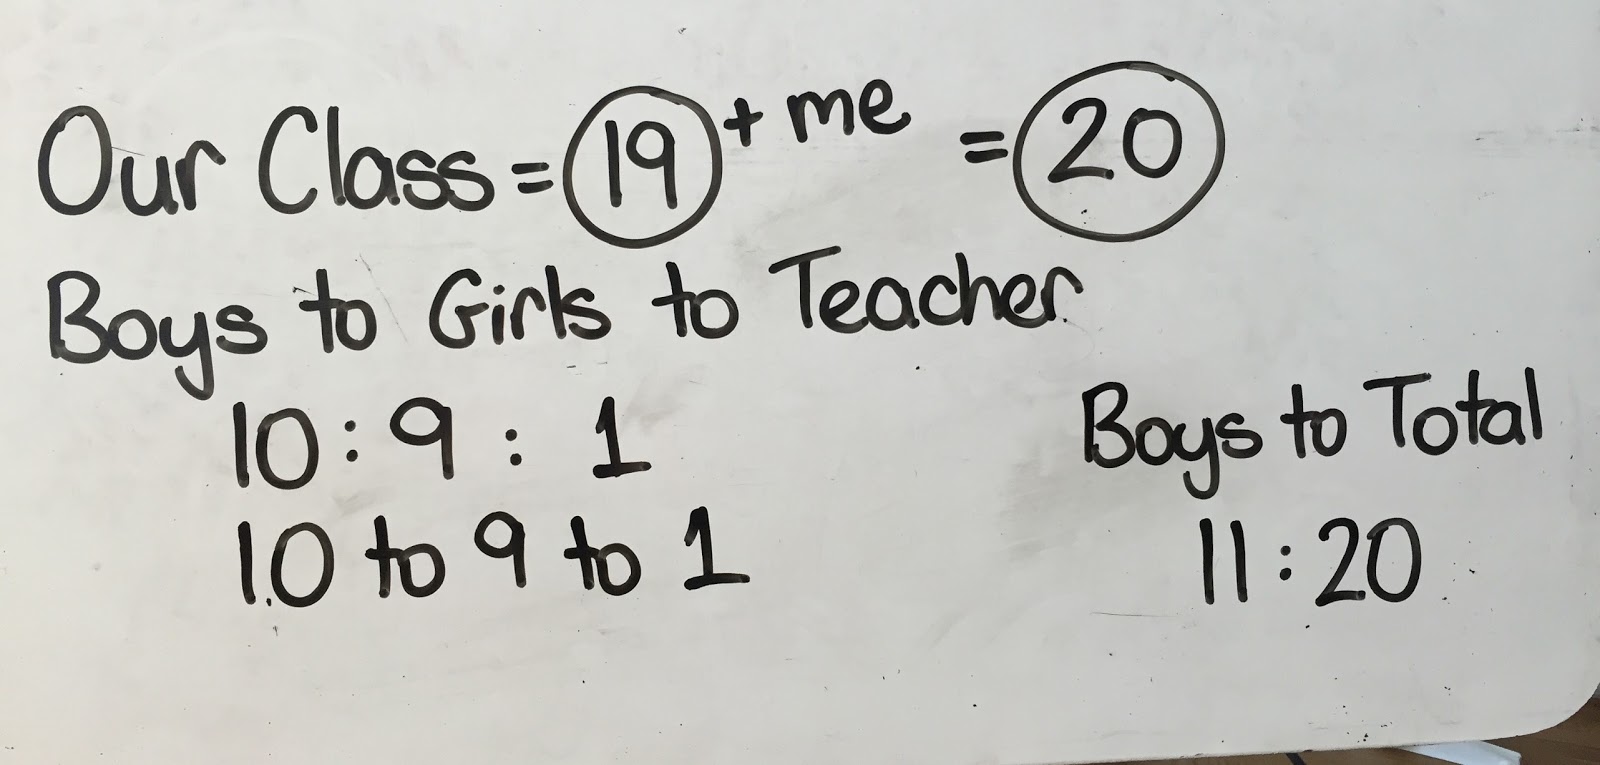 Our Class = 19 + me = 20
Boys to Girls to Teacher
10 : 9 : 1
10 to 9 to 1
Boys to Total
11 : 20